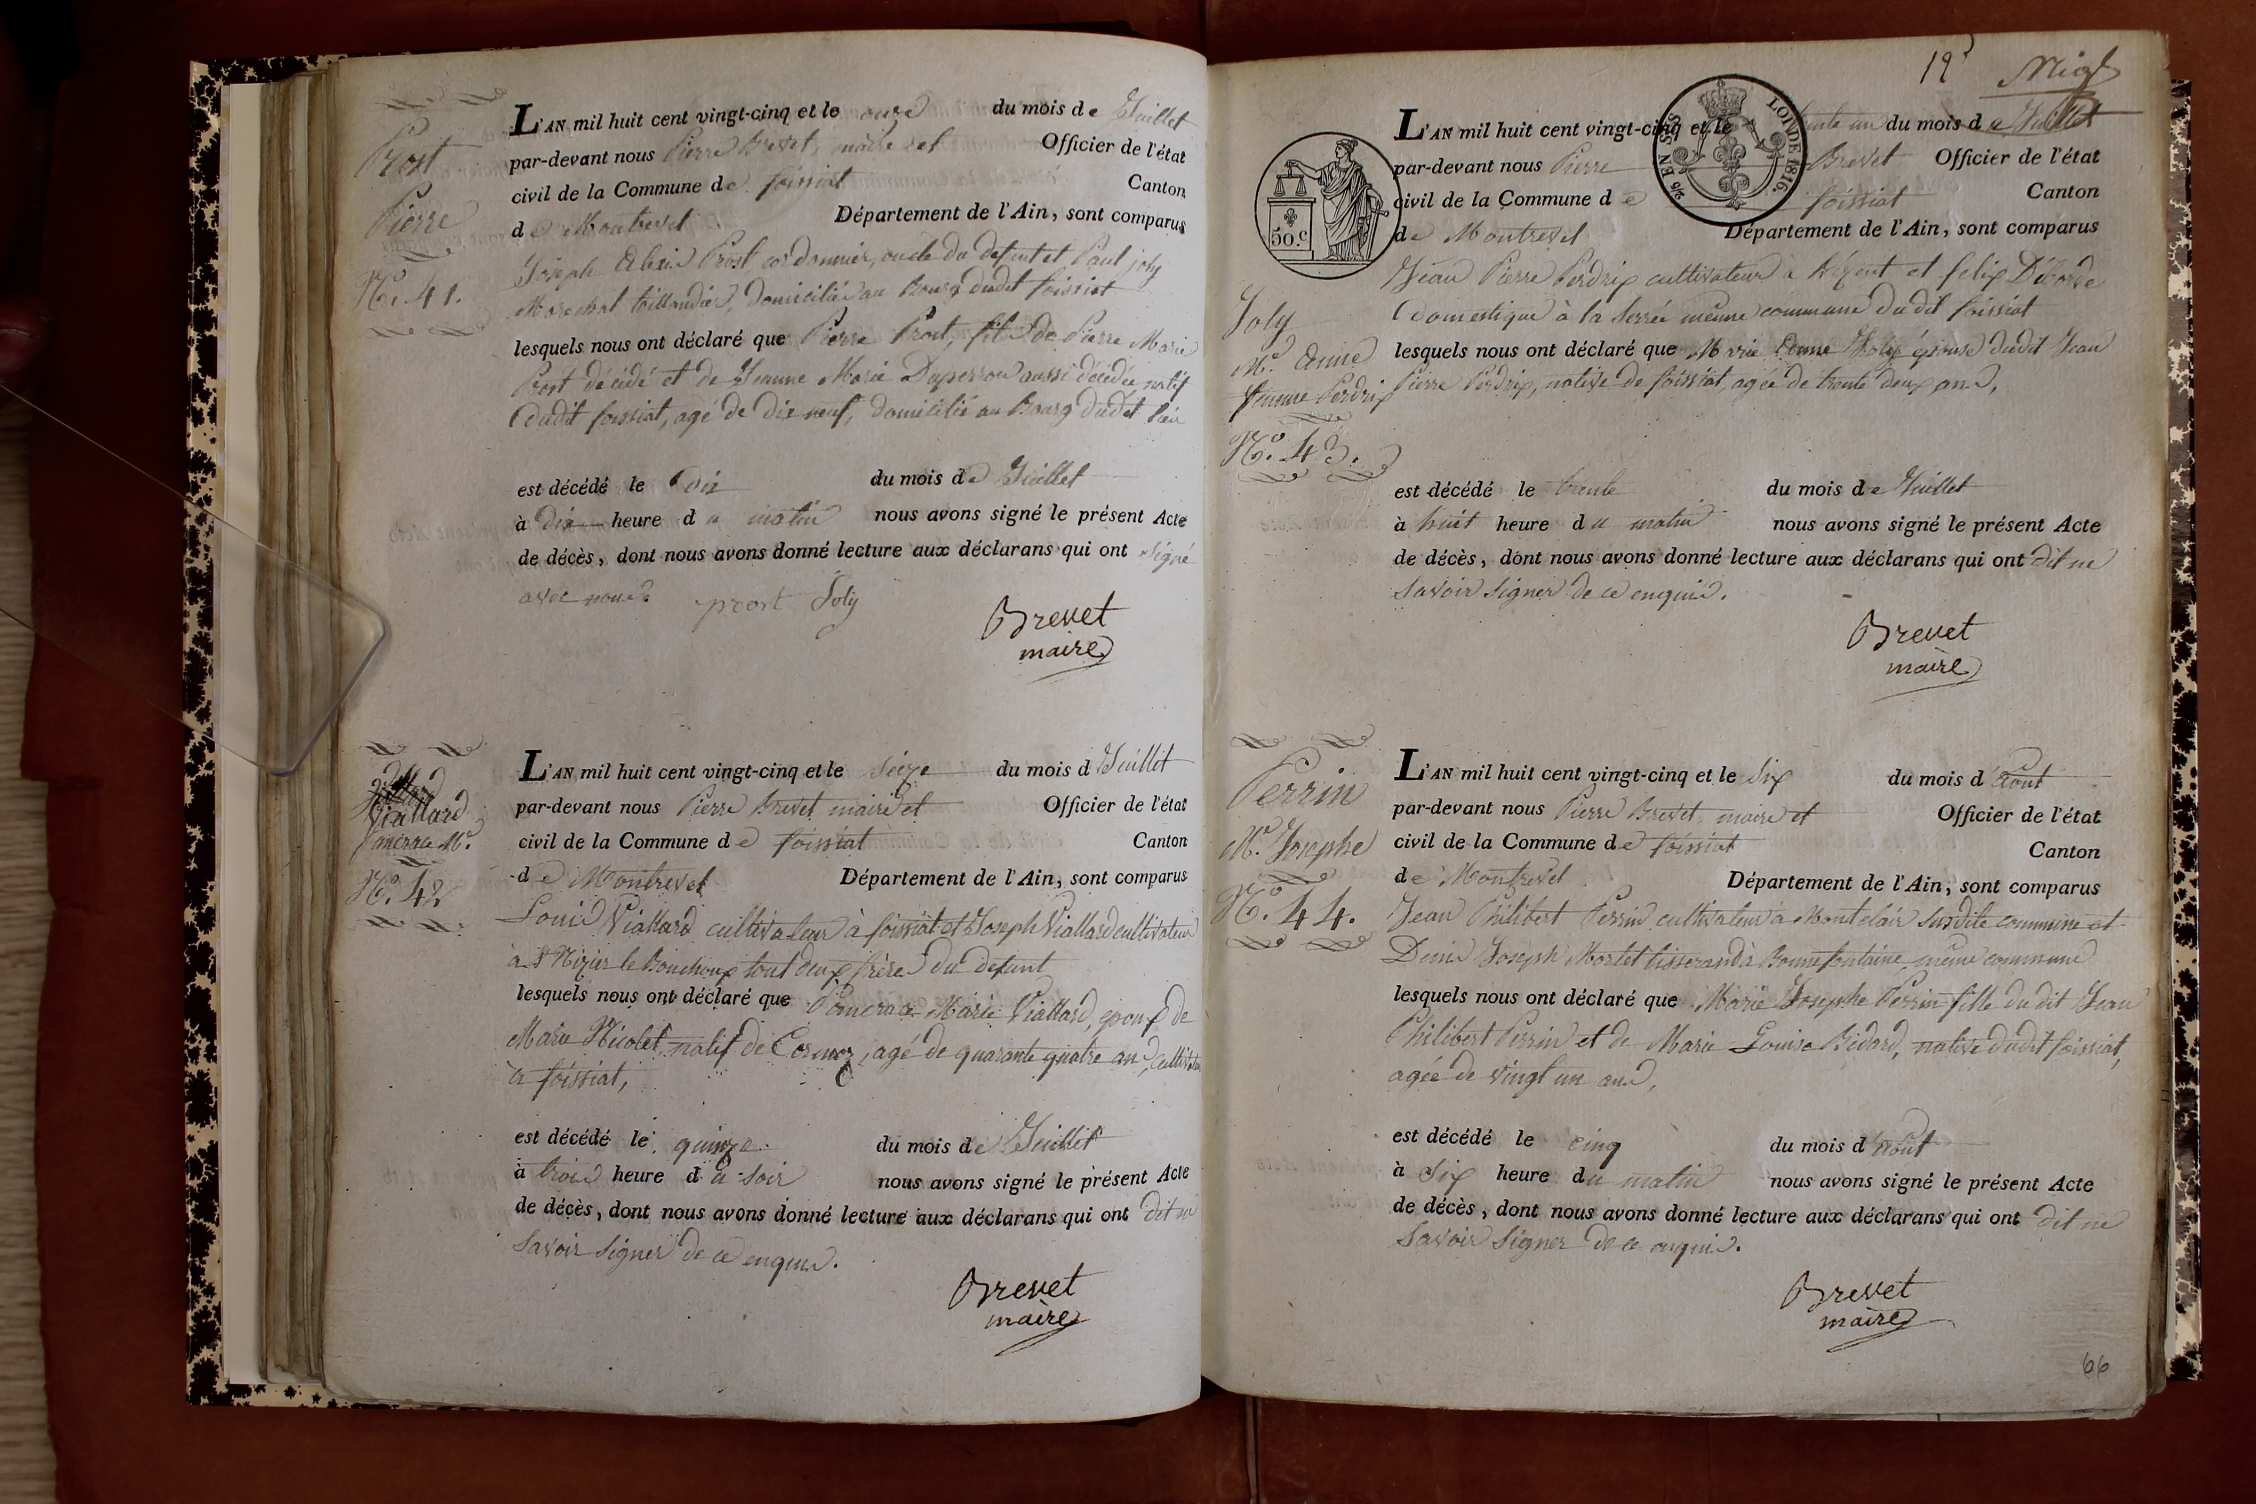 Prost
Pierre
N.º 41.
L'AN mil huit cent vingt-cinq et le onze du mois de Juillet
par-devant nous Pierre Brevet, maire et Officier de l'état
civil de la Commune de foissiat Canton
de Montrevel Département de l'Ain, sont comparus
Joseph Prost cordonnier, oncle du defunt et Paul joly
Marechal taillandier, domiciliés au Bourg dudit foissiat
lesquels nous ont déclaré que Pierre Prost, fils de Pierre Marie
Prost décédé et de Jeanne Marie Duperron aussi décédée, natif
dudit foissiat, agé de dix neuf, domicilié au Bourg dudit lieu
est décédé le dix du mois de Juillet
à dix heure du matin nous avons signé le présent Acte
de décès, dont nous avons donné lecture aux déclarans qui ont signé
avec nous. prost Joly
Brevet
maire
Viallard
Pancrace M.ie
N.º 42
L'AN mil huit cent vingt-cinq et le seize du mois d Juillet
par-devant nous Pierre Brevet maire et Officier de l'état
civil de la Commune de foissiat Canton
de Montrevel Département de l'Ain, sont comparus
Louis Viallard cultivateur à foissiat et Joseph Viallard cultivateur
à St Nizier le Bouchoux tout deux frère du defunt
lesquels nous ont déclaré que Pancrace Marie Viallard, epoux de
Marie Nicolet natif de Cormoz, agé de quarante quatre ans, cultivateur
à foissiat,
est décédé le quinze du mois de Juillet
à trois heure du soir nous avons signé le présent Acte
de décès, dont nous avons donné lecture aux déclarans qui ont dit ne
savoir signer de ce enquis.
Brevet
maire
19
50.c
EN SUS
LOI DE 1816.
Joly
M.ie Anne
femme Perdrix
N.º 43.
L'AN mil huit cent vingt-cinq et le trente un du mois de Juillet
par-devant nous Pierre Brevet Officier de l'état
civil de la Commune de foissiat Canton
de Montrevel Département de l'Ain, sont comparus
Jean Pierre Perdrix cultivateur a et felix
domestique à la Serrée même commune dudit foissiat
lesquels nous ont déclaré que Marie Anne Joly épouse dudit Jean
Pierre Perdrix, native de foissiat, agée de trente deux ans,
est décédé le trente du mois de Juillet
à huit heure du matin nous avons signé le présent Acte
de décès, dont nous avons donné lecture aux déclarans qui ont dit ne
savoir signer de ce enquis.
Brevet
maire
Perrin
M.ie Josephe
N.º 44.
L'AN mil huit cent vingt-cinq et le six du mois d Aout
par-devant nous Pierre Brevet, maire et Officier de l'état
civil de la Commune de foissiat Canton
de Montrevel Département de l'Ain, sont comparus
Jean Philibert Perrin cultivateur à Montclair susdite commune et
Denis Joseph Morlet tisserand à Bonnefontaine même commune
lesquels nous ont déclaré que Marie Josephe Perrin fille du dit Jean
Philibert Perrin et de Marie Louise Bidard, native dudit foissiat,
agée de vingt un ans,
est décédé le cinq du mois d Aout
à six heure du matin nous avons signé le présent Acte
de décès, dont nous avons donné lecture aux déclarans qui ont dit ne
savoir signer de ce enquis.
Brevet
maire
66